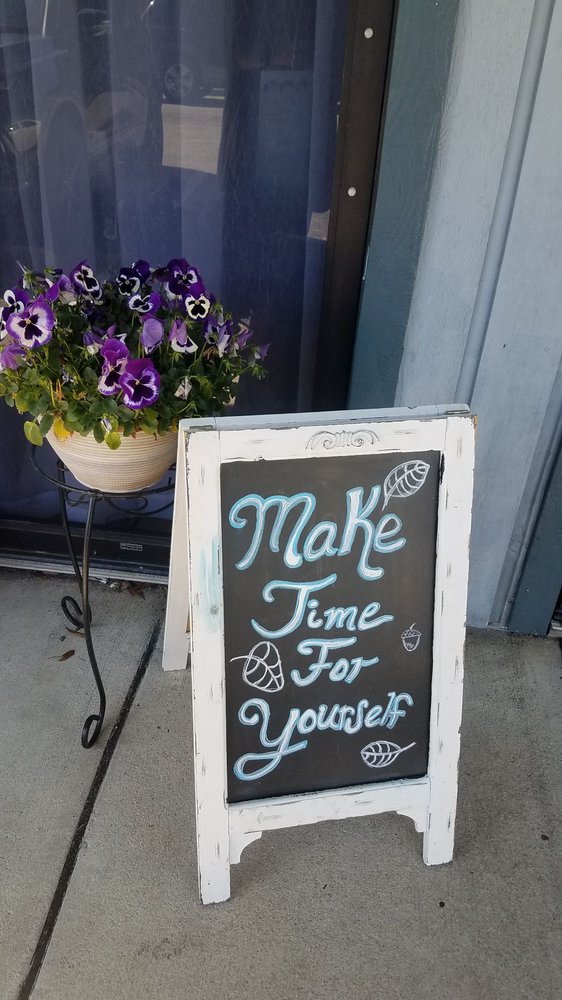 Make
Time
For
Yourself